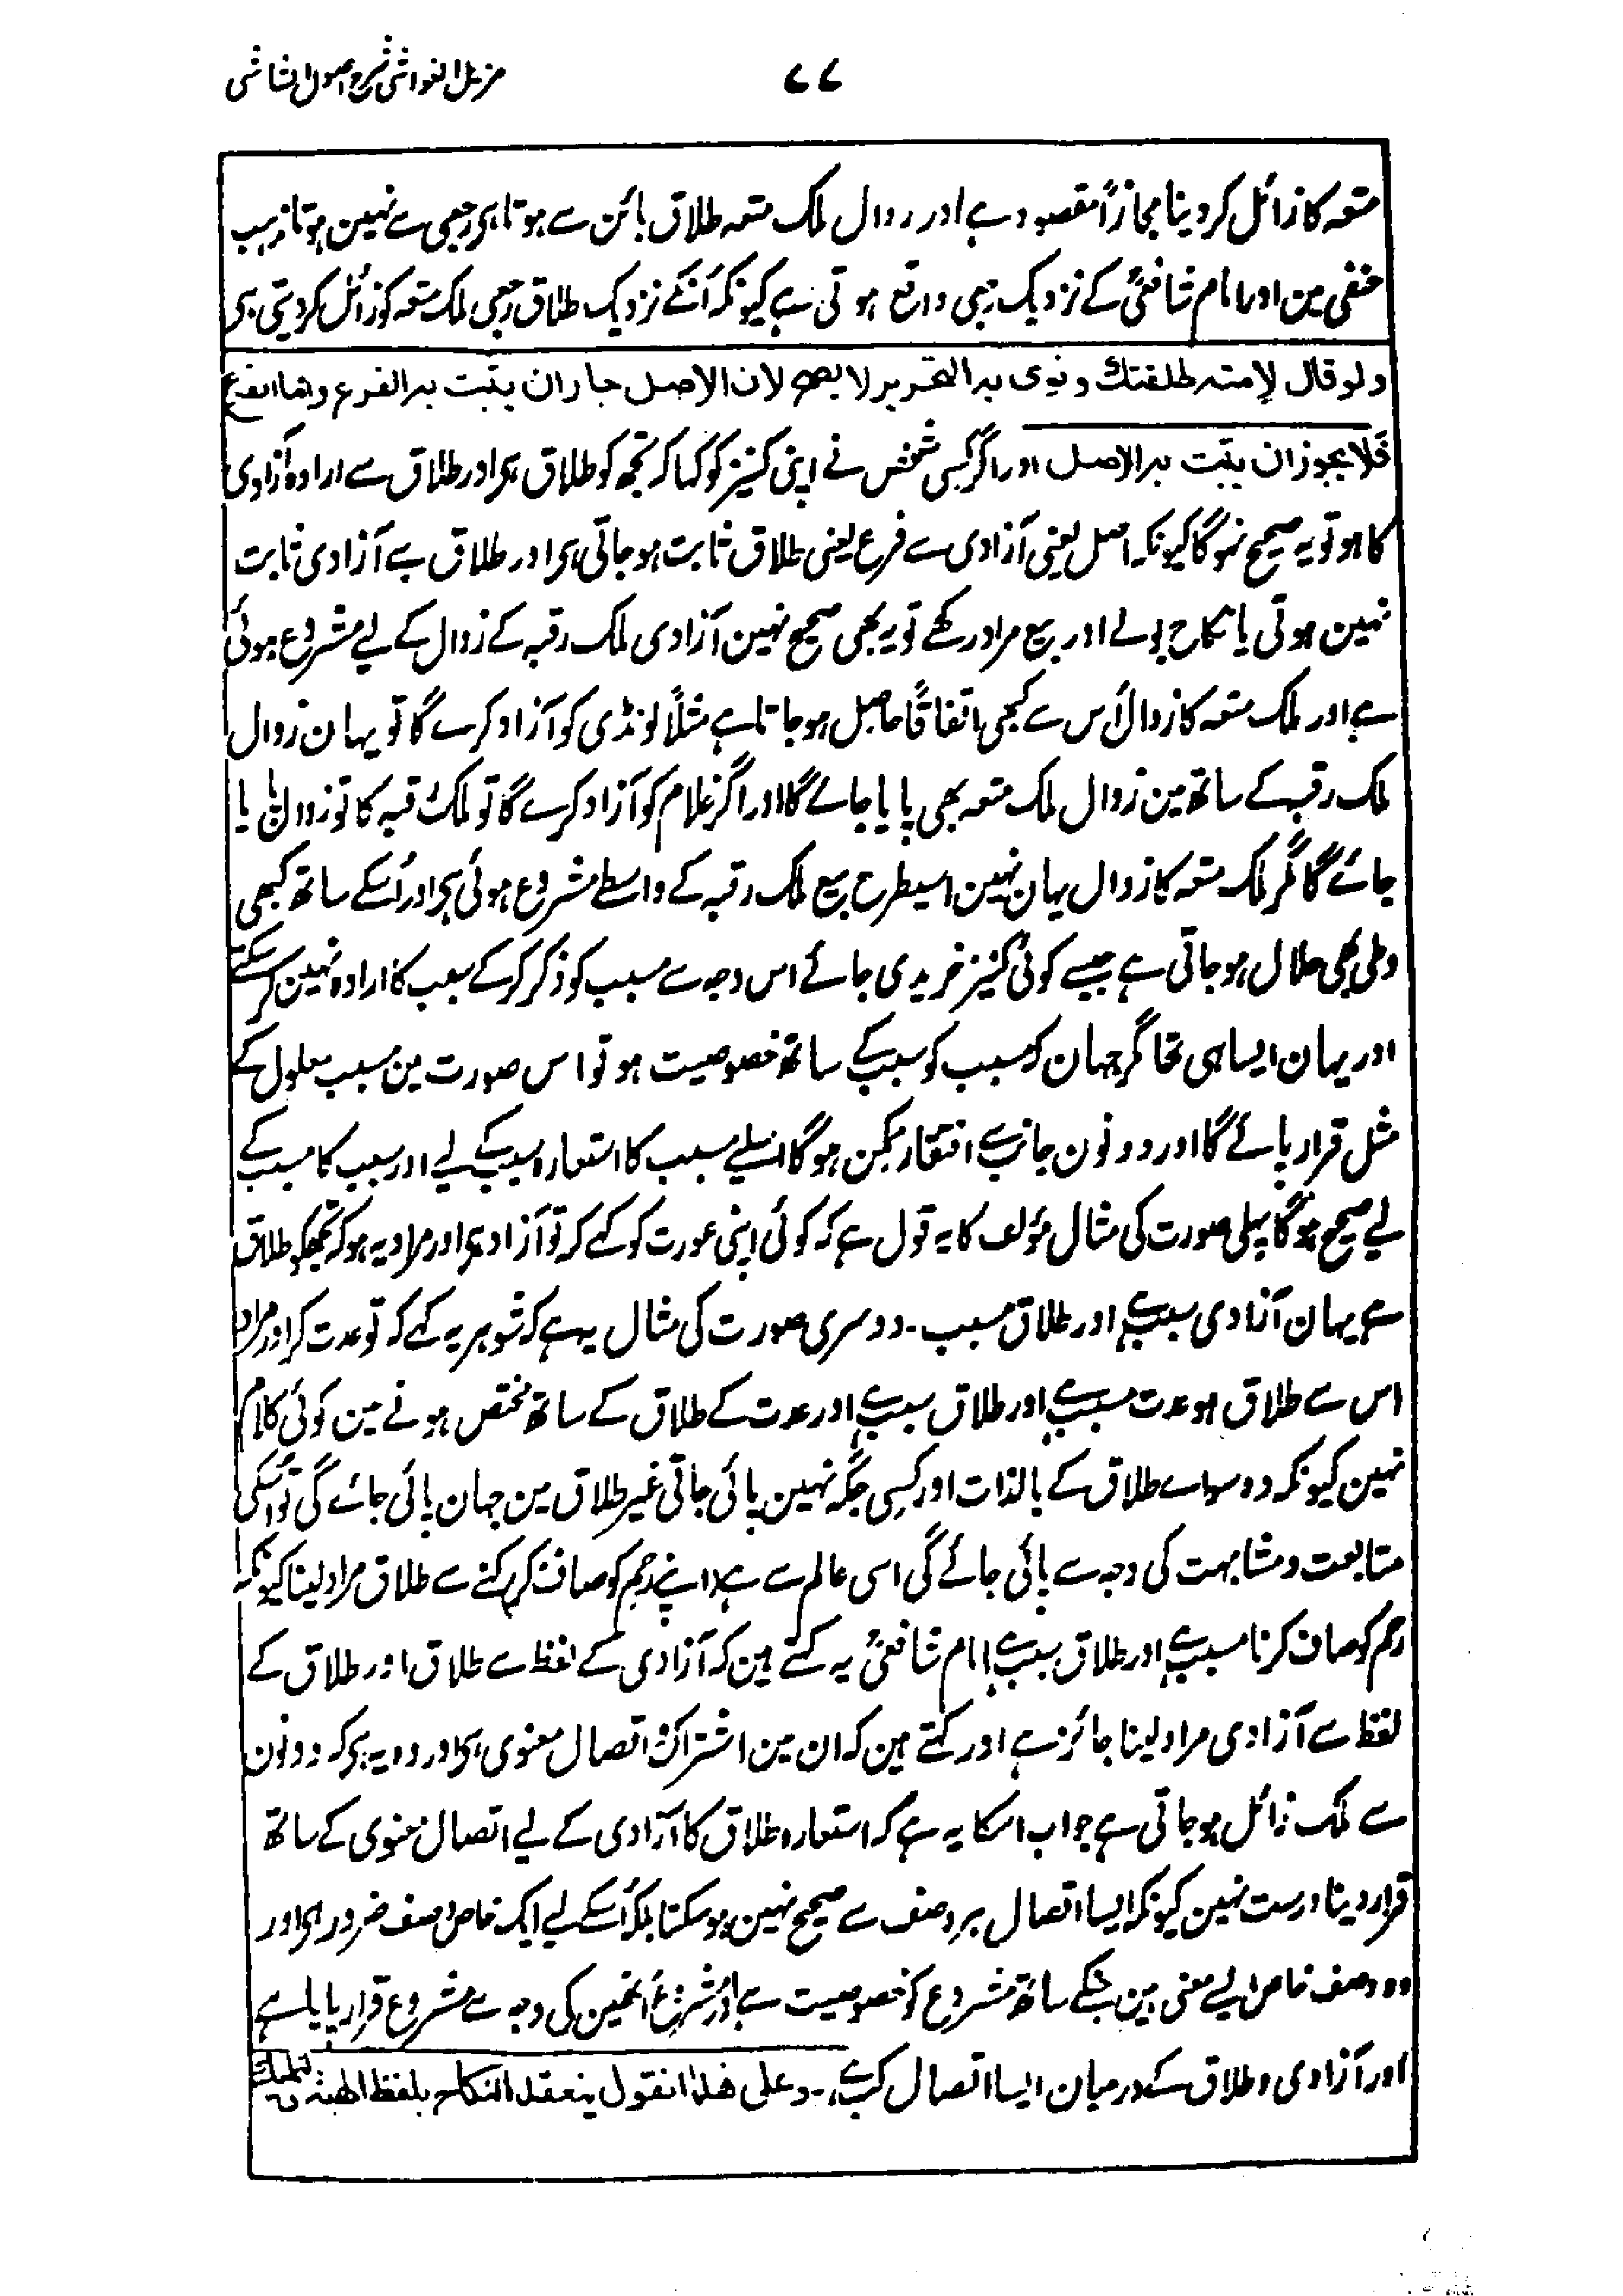 مزیل الغواشی شرح اصول الشاشی
۷۷
متعہ کا زائل کر دینا مجازاً مقصود ہے اور زوال ملک متعہ طلاق بائن سے ہوتا ہی رجعی سے نہین ہوتا مذہب
حنفی مین اور امام شافعیؒ کے نزدیک رجعی واقع ہوتی ہے کیونکہ اُنکے نزدیک طلاق رجعی ملک متعہ کو زائل کر دیتی ہی
ولو قال لامتہ طلقتک ونوی بہ التحریر لا یصح لان الاصل جاز ان یثبت بہ الفرع واما الفرع
فلا یجوز ان یثبت بہ الاصل اور اگر کسی شخص نے اپنی کنیز کو کہا کہ تجھ کو طلاق ہی اور طلاق سے ارادہ آزادی
کا ہو تو یہ صحیح نہوگا کیونکہ اصل یعنی آزادی سے فرع یعنی طلاق ثابت ہو جاتی ہی اور طلاق سے آزادی ثابت
نہین ہوتی یا نکاح بولے اور بیع مراد رکھے تو یہ بھی صحیح نہین آزادی ملک رقبہ کے زوال کے لیے مشروع ہوئی
ہے اور ملک متعہ کا زوال اُس سے کبھی اتفاقًا حاصل ہو جاتا ہے مثلًا لونڈی کو آزاد کرے گا تو یہان زوال
ملک رقبہ کے ساتھ مین زوال ملک متعہ بھی پایا جائے گا اور اگر غلام کو آزاد کرے گا تو ملک رقبہ کا تو زوال پایا
جائے گا مگر ملک متعہ کا زوال یہان نہین اسیطرح بیع ملک رقبہ کے واسطے مشروع ہوئی ہی اور اُسکے ساتھ کبھی
وطی بھی حلال ہو جاتی ہے جیسے کوئی کنیز خریدی جائے اس وجہ سے مسبب کو ذکر کر کے سبب کا ارادہ نہین کر سکتے
اور یہان ایسا ہی تھا مگر جہان کہ مسبب کو سبب کے ساتھ خصوصیت ہو تو اس صورت مین مسبب معلول کے
مثل قرار پائے گا اور دونون جانب سے افتقار ممکن ہوگا اسلیے مسبب کا استعارہ سبب کے لیے اور سبب کا مسبب کے
لیے صحیح ہوگا پہلی صورت کی مثال مؤلف کا یہ قول ہے کہ کوئی اپنی عورت کو کہے کہ تو آزاد ہی اور مراد یہ ہو کہ تجھکو طلاق
ہے یہان آزادی سبب ہے اور طلاق مسبب۔ دوسری صورت کی مثال یہ ہے کہ شوہر یہ کہے کہ تو عدت کر اور مراد
اس سے طلاق ہو عدت مسبب ہے اور طلاق سبب ہے اور عدت کے طلاق کے ساتھ مختص ہونے مین کوئی کلام
نہین کیونکہ وہ سواے طلاق کے بالذات اور کسی جگہ نہین پائی جاتی غیر طلاق مین جہان پائی جائے گی تو اُسکی
متابعت و مشابہت کی وجہ سے پائی جائے گی اسی عالم سے ہے اپنے رحم کو صاف کر کہنے سے طلاق مراد لینا کیونکہ
رحم کو صاف کرنا مسبب ہے اور طلاق سبب ہے امام شافعیؒ یہ کہتے ہین کہ آزادی کے لفظ سے طلاق اور طلاق کے
لفظ سے آزادی مراد لینا جائز ہے اور کہتے ہین کہ ان مین اشتراک اتصال معنوی ہی اور وہ یہ ہی کہ دونون
سے ملک زائل ہو جاتی ہے جواب اسکا یہ ہے کہ استعارہ طلاق کا آزادی کے لیے اتصال معنوی کے ساتھ
قرار دینا درست نہین کیونکہ ایسا اتصال ہر وصف سے صحیح نہین ہو سکتا بلکہ اُسکے لیے ایک خاص وصف ضرور ہی اور
وہ وصف خاص ایسے معنی ہین جنکے ساتھ مشروع کو خصوصیت ہے اور مشروع اُنھین کی وجہ سے مشروع قرار پایا ہے
اور آزادی و طلاق کے درمیان ایسا اتصال کب ہے۔ وعلی ھذا نقول ینعقد النکاح بلفظ الھبۃ والتملیک